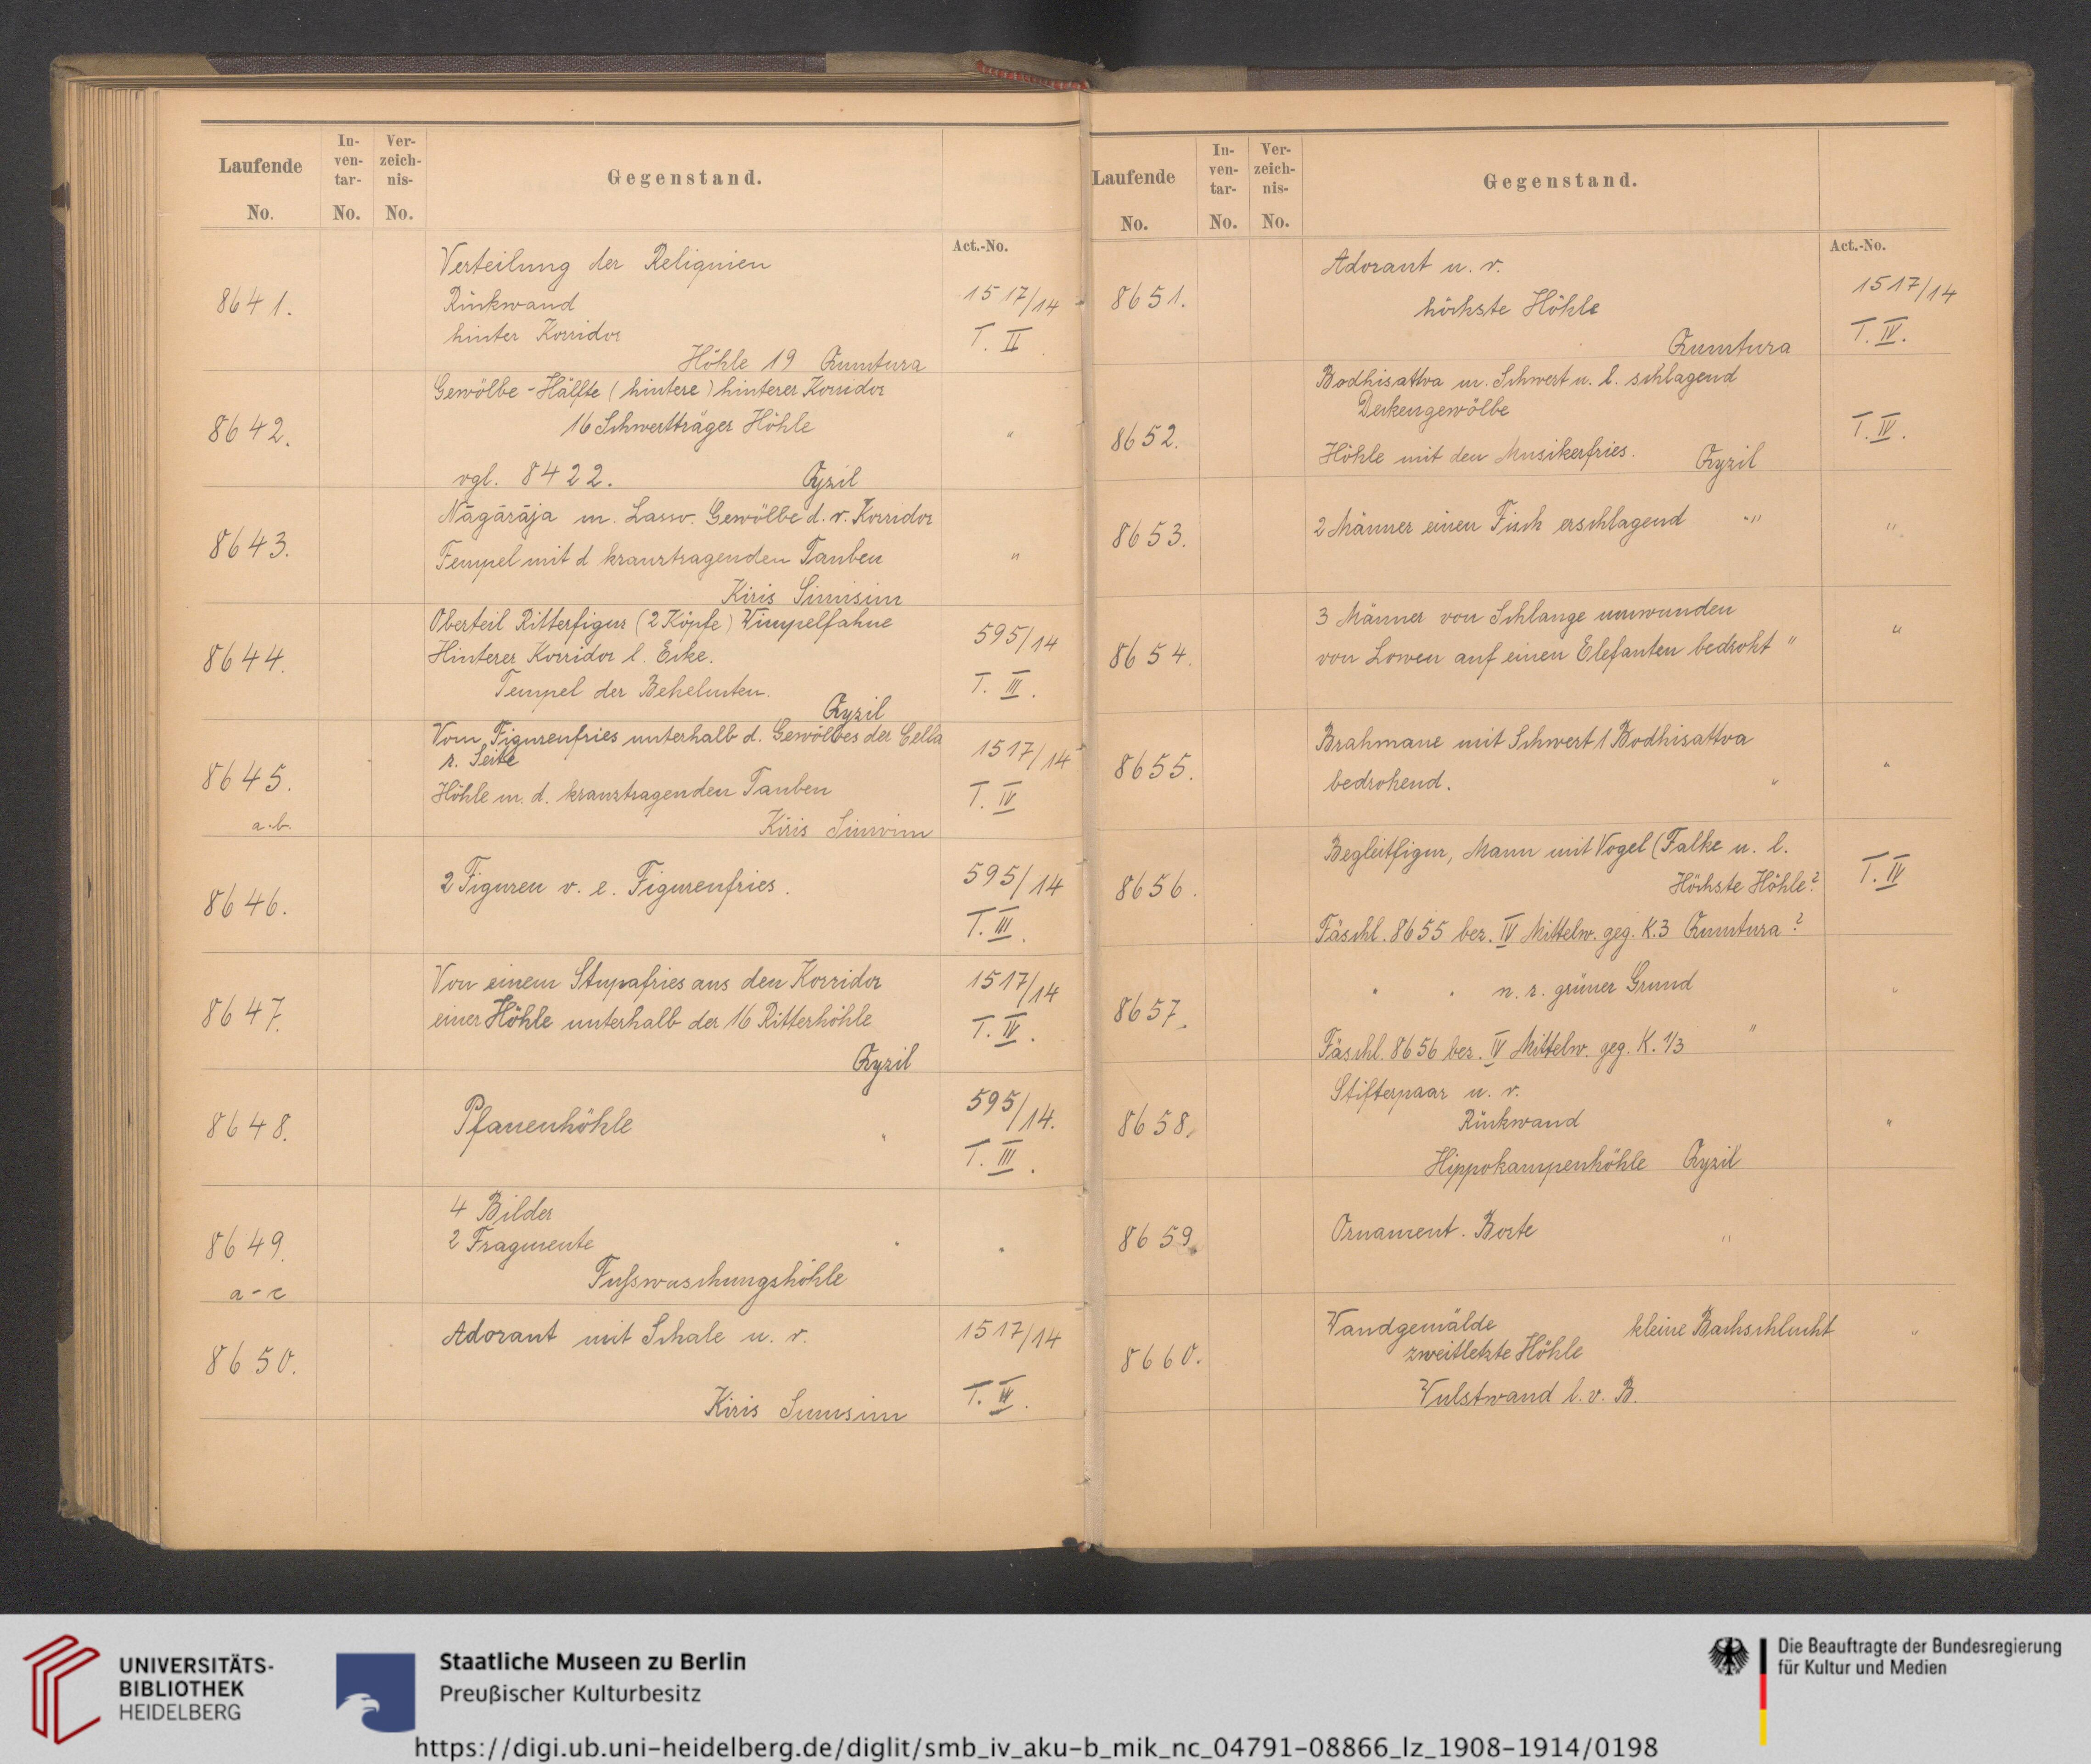 Laufende No.
In-ven-tar- No.
Ver-zeich-nis- No.
Gegenstand.
Act.-No.
8641.
Verteilung der Reliquien
Rückwand
hinter Korridor
Höhle 19 Qumtura
1517/14
T. II
8642.
Gewölbe-Hälfte (hintere) hinterer Korridor
16 Schwertträger Höhle
vgl. 8422. Qyzil
"
8643.
Nāgārāja m. Lasso. Gewölbe d. r. Korridor
Tempel mit d kranztragenden Tauben
Kiris Simisim
"
8644.
Oberteil Ritterfigur (2 Köpfe) Wimpelfahne
Hinterer Korridor l. Ecke.
Tempel der Behelmten.
Qyzil
595/14
T. III.
8645.
a.b.
Vom Figurenfries unterhalb d. Gewölbes der Cella
r. Seite
Höhle m. d. kranztragenden Tauben
Kiris Simsim
1517/14
T. IV
8646.
2 Figuren v. e. Figurenfries.
595/14
T. III.
8647.
Von einem Stupafries aus den Korridor
einer Höhle unterhalb der 16 Ritterhöhle
Qyzil
1517/14
T. IV.
8648.
Pfauenhöhle
"
595/14.
T. III.
8649.
a-c
4 Bilder
2 Fragmente
Fußwaschungshöhle
"
"
8650.
Adorant mit Schale n. r.
Kiris Simsim
1517/14
T. IV.
Laufende No.
In-ven-tar- No.
Ver-zeich-nis- No.
Gegenstand.
Act.-No.
8651.
Adorant n. r.
höchste Höhle
Qumtura
1517/14
T. IV.
8652.
Bodhisattva m. Schwert n. l. schlagend
Deckengewölbe
Höhle mit den Musikerfries. Qyzil
T. IV.
8653.
2 Männer einen Fisch erschlagend "
"
8654.
3 Männer von Schlange umwunden
von Lowen auf einen Elefanten bedroht "
"
8655.
Brahmane mit Schwert 1 Bodhisattva
bedrohend. "
"
8656.
Begleitfigur, Mann mit Vogel (Falke n. l.
Höchste Höhle?
Fäschl. 8655 bez. IV Mittelw. geg. K.3 Qumtura?
T. IV
8657.
" " n. r. grüner Grund
Fäschl. 8656 bez. IV Mittelw. geg. K. 1/3 "
"
8658.
Stifterpaar n. r.
Rückwand
Hippokampenhöhle Qyzil
"
8659.
Ornament. Borte "
8660.
Wandgemälde kleine Bachschlucht
zweitletzte Höhle
Wulstwand l. v. B.
"
UNIVERSITÄTS-
BIBLIOTHEK
HEIDELBERG
Staatliche Museen zu Berlin
Preußischer Kulturbesitz
Die Beauftragte der Bundesregierung
für Kultur und Medien
https://digi.ub.uni-heidelberg.de/diglit/smb_iv_aku-b_mik_nc_04791-08866_lz_1908-1914/0198